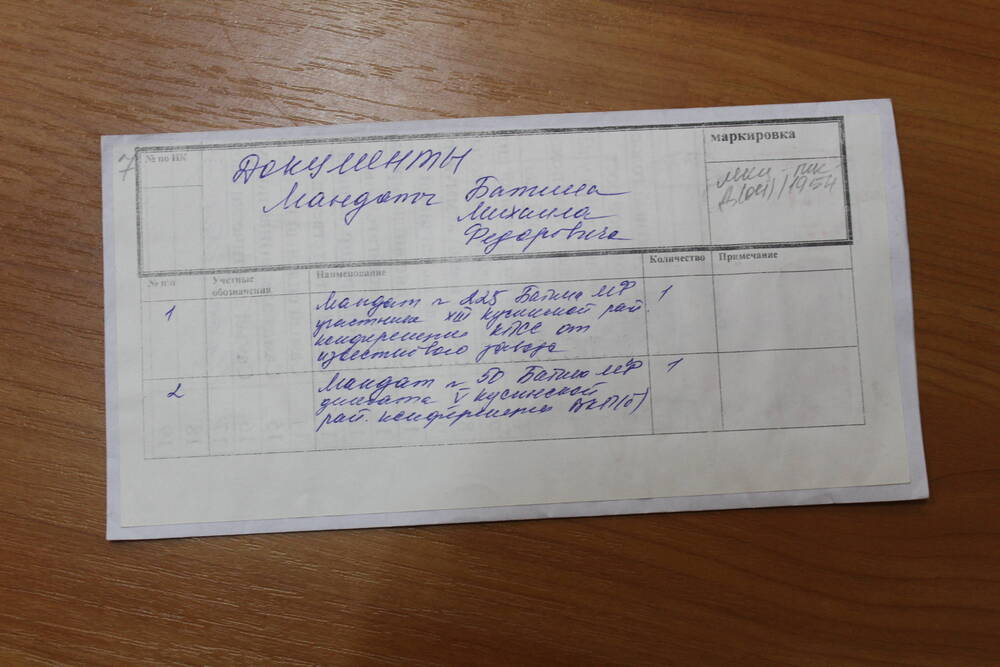 7 № по НК
маркировка
Документы
Мандаты Батина
Михаила
Федоровича
МКИ - ПК
1954
№ п/п Учетные обозначения Наименование Количество Примечание
1 Мандат № 225 Батина МФ 1
участника XIII Кусинской рай.
конференции КПСС от
известкового завода
2 Мандат № 50 Батина МФ 1
делегата V Кусинской
рай. конференции ВКП(б)